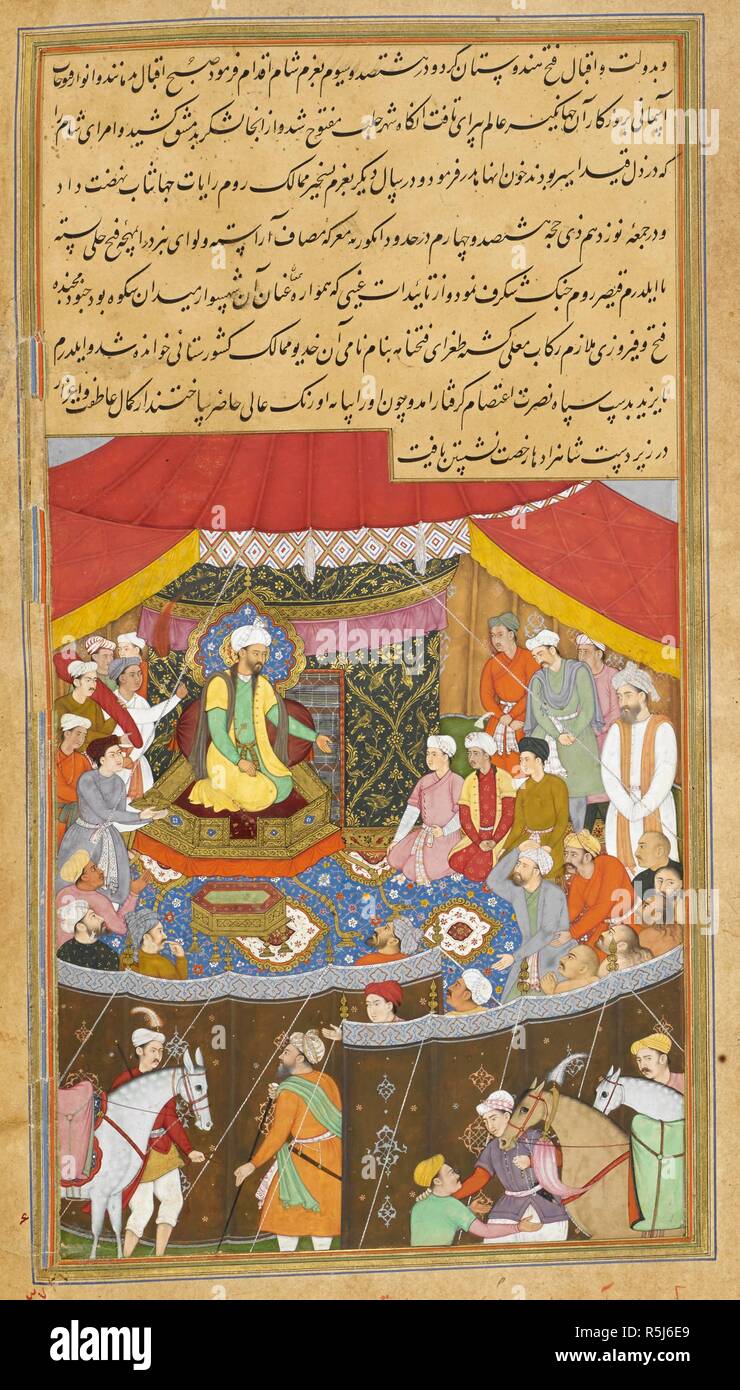 و بدولت و اقبال فتح هندوستان کرد و در هشتصد و سیوم بعزم شام اقدام فرمود صبح اقبال
روزکار آن جهانکیر عالم پیرای تافت آنکاه شهر حلب مفتوح شد و از آنجا لشکر بدمشق کشید و امرای شام را
که در ذل قید اسیر بودند خون انها هدر فرمود و در سال دیکر بعزم تسخیر ممالک روم رایات جهانتاب نهضت داد
و در جمعه نوزدهم ذی حجه هشتصد و چهارم در حدود انکوریه معرکه مصاف آراسته و لوای
با ایلدرم قیصر روم جنک شکرف نمود و از تائیدات غیبی که همواره عنان آن شهسوار میدان شکوه بود جنود مجنده
فتح و فیروزی ملازم رکاب معلی کشته طغرای فتحنامه بنام نامی آن خدیو ممالک کشورستانی خوانده شد و ایلدرم
بایزید بدست سپاه نصرت اعتصام کرفتار آمد و چون او را بپایه اورنک عالی حاضر ساختند از کمال عاطفت و اعزاز
در زیر دست شاهزادها رخصت نشستن یافت
۶
۳۷
alamy
alamy
Image ID: R5J6E9
www.alamy.com